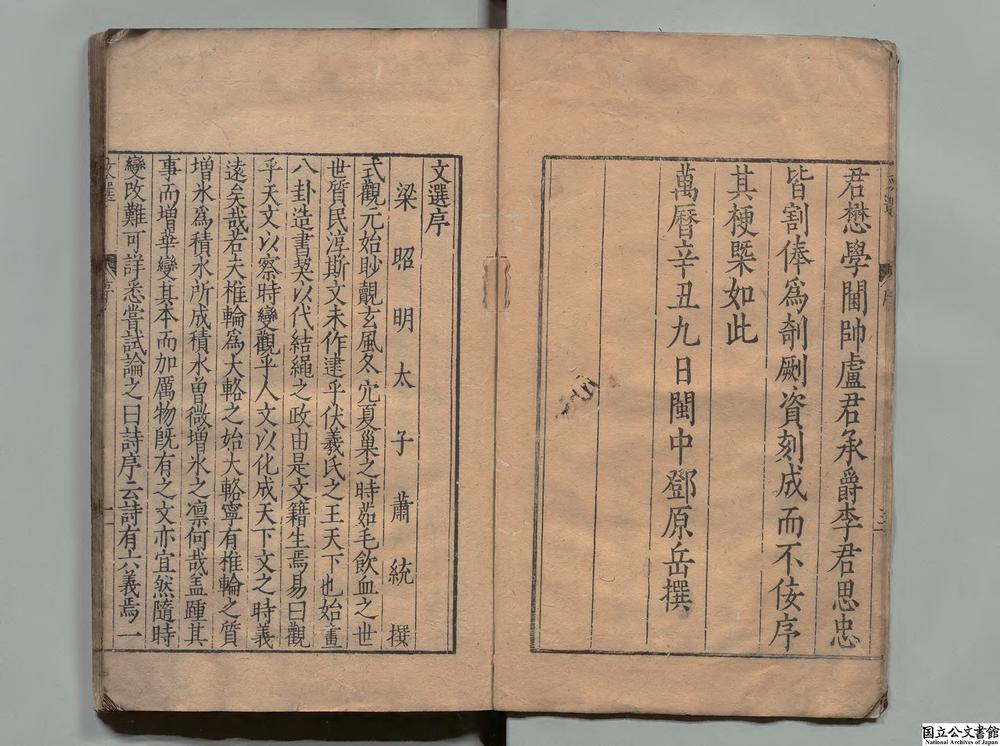 君懋學閫帥盧君承爵李君思忠
皆割俸爲剞劂資刻成而不佞序
其梗槩如此
萬曆辛丑九日閩中鄧原岳撰
文選序
梁昭明太子蕭統撰
式觀元始眇覿玄風冬穴夏巢之時茹毛飲血之世
世質民淳斯文未作逮乎伏羲氏之王天下也始畫
八卦造書契以代結繩之政由是文籍生焉易曰觀
乎天文以察時變觀乎人文以化成天下文之時義
遠矣哉若夫椎輪爲大輅之始大輅寧有椎輪之質
增冰爲積水所成積水曾微增冰之凛何哉盖踵其
事而增華變其本而加厲物旣有之文亦宜然隨時
變改難可詳悉嘗試論之曰詩序云詩有六義焉一
文選
序
国立公文書館
National Archives of Japan